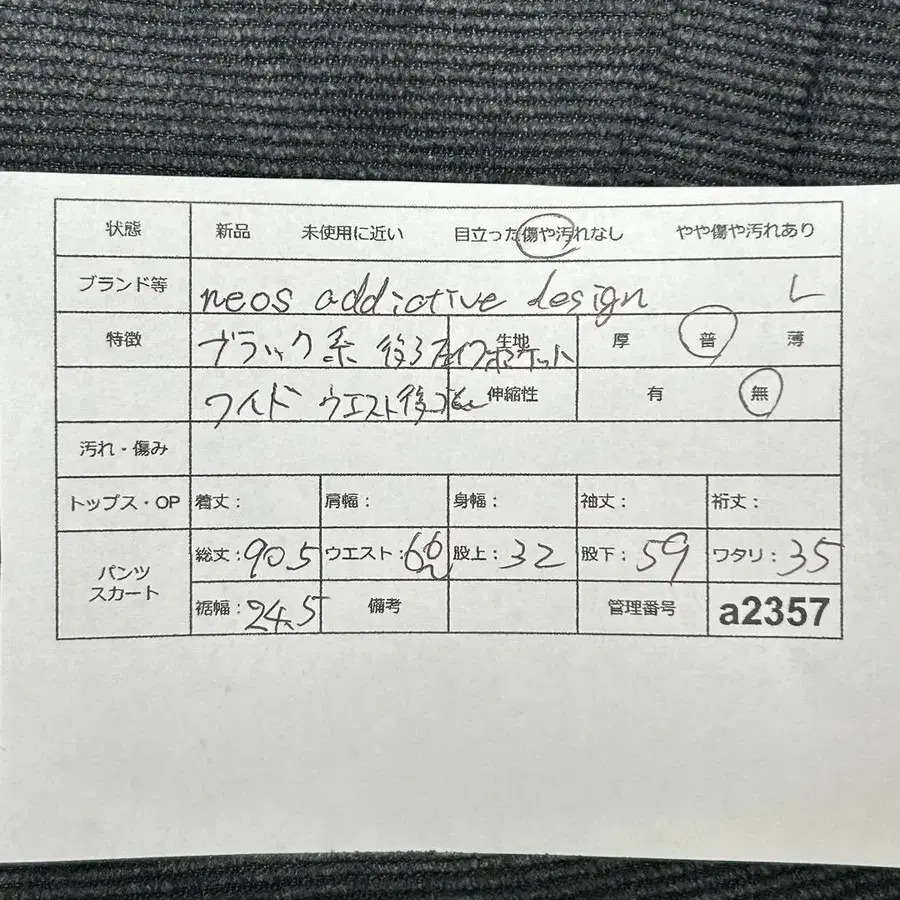 状態 新品 未使用に近い 目立った傷や汚れなし やや傷や汚れあり
ブランド等 neos addictive design L
特徴 ブラック系 後ろ ポケット 生地 厚 普 薄
ワイド ウエスト後ゴム 伸縮性 有 無
汚れ・傷み
トップス・OP 着丈： 肩幅： 身幅： 袖丈： 裄丈：
パンツ スカート 総丈：90.5 ウエスト：66 股上：32 股下：59 ワタリ：35
裾幅：24.5 備考 管理番号 a2357